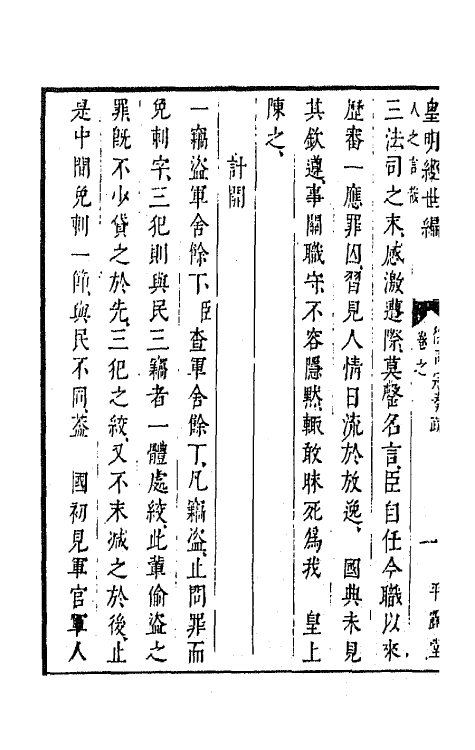 皇明經世編
人之言哉
卷之
一
平露堂
三法司之末、感激遭際、莫罄名言、臣自任今職以來、
歷審一應罪囚、習見人情日流於放逸、 國典未見
其欽遵、事關職守、不容隱默、輒敢昧死爲我 皇上
陳之、
計開
一竊盜軍舍餘丁、臣查軍舍餘丁、凡竊盜、止問罪而
免刺字、三犯則與民三竊者一體處絞、此輩偷盜之
罪、旣不少貸之於先、三犯之絞、又不末減之於後、止
是中間免刺一節、與民不同、蓋 國初見軍官軍人